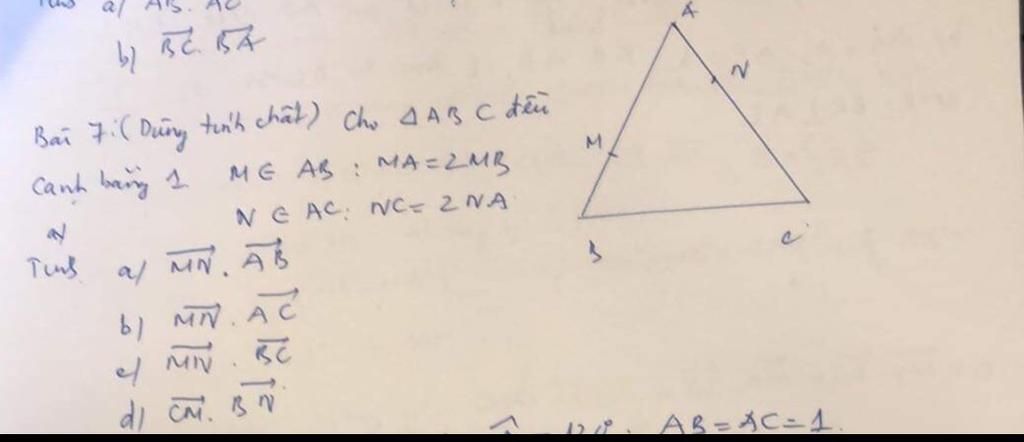 a) AB. AC
b) BC. BA
Bài 7: (Dùng tính chất) Cho ΔABC đều
cạnh bằng 1 M ∈ AB : MA = 2MB
N ∈ AC: NC = 2NA
a)
Tính a) MN. AB
b) MN. AC
c) MN. BC
d) CM. BN
AB = AC = 1.
A
N
M
B
C